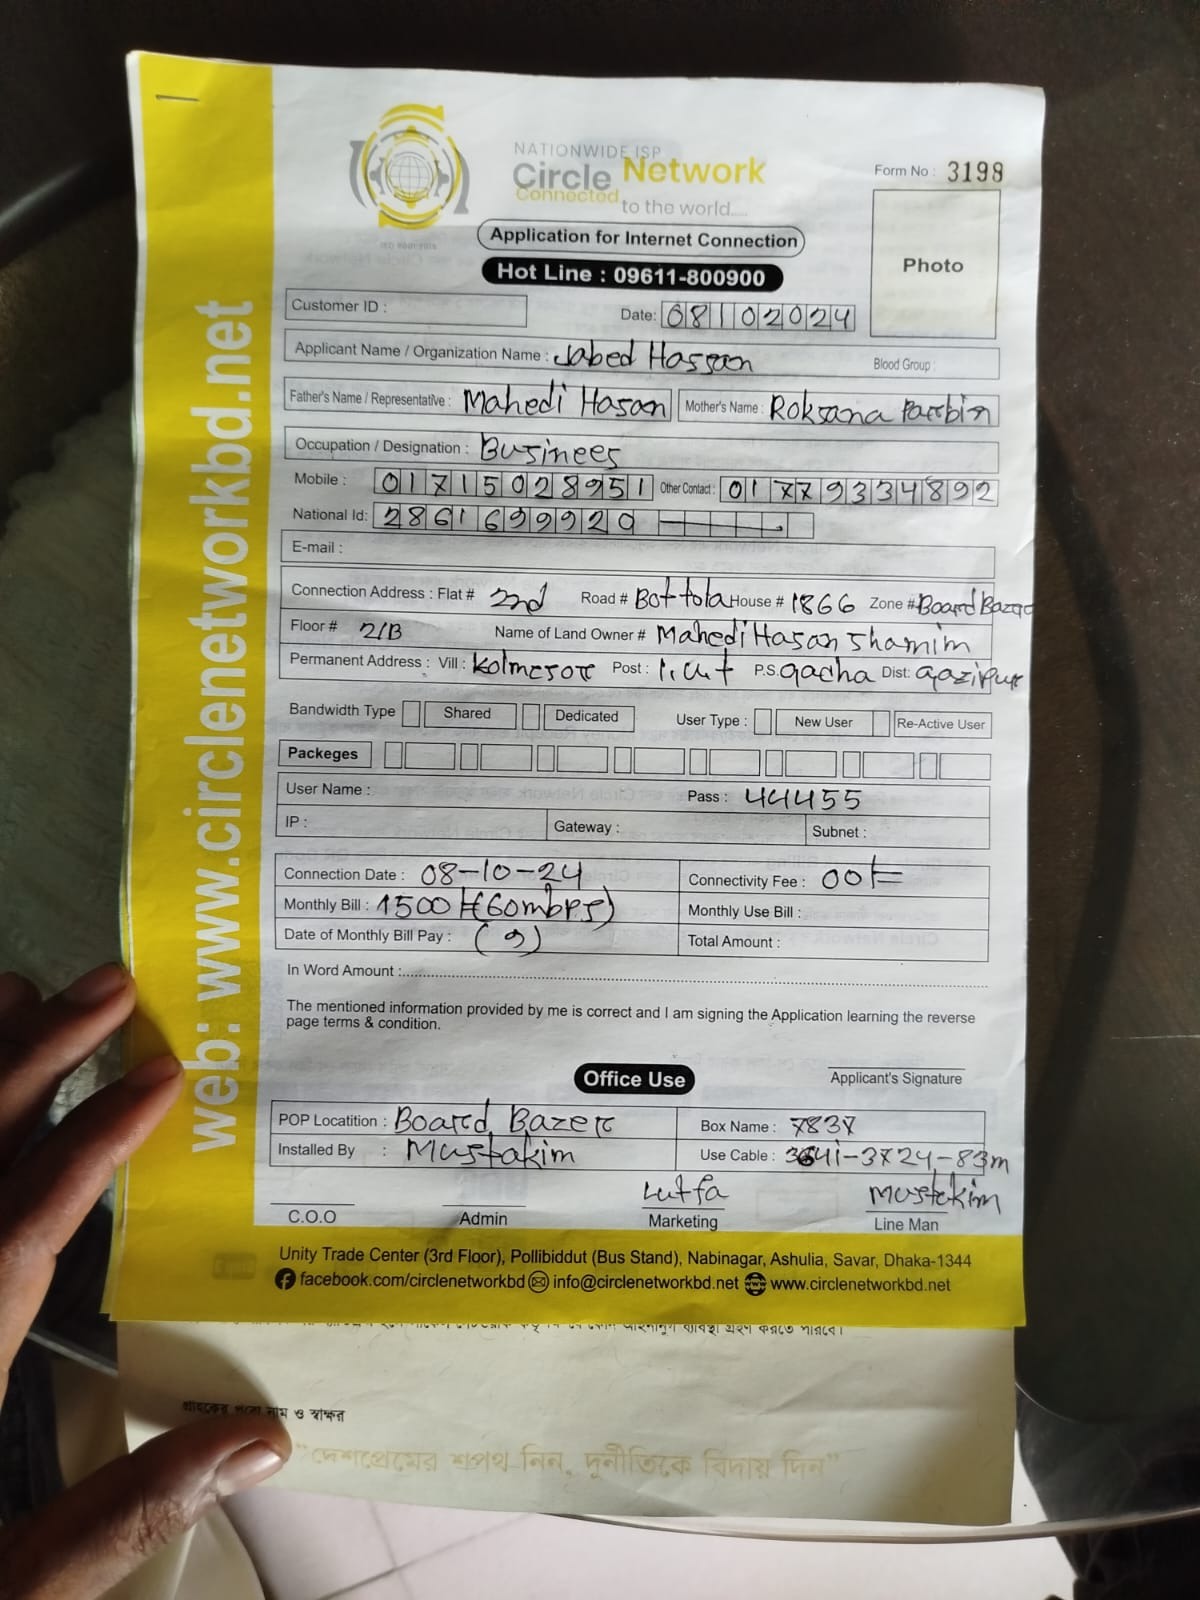 NATIONWIDE ISP
Circle Network
Connected to the world.....
ISO 9001:2015
Form No : 3198
Application for Internet Connection
Photo
Hot Line : 09611-800900
Customer ID :
Date: 08102024
Applicant Name / Organization Name : Jabed Hassan
Blood Group :
Father's Name / Representative : Mahedi Hasan
Mother's Name : Roksana Parbin
Occupation / Designation : Businees
Mobile : 01715028951
Other Contact : 01779334892
National Id: 2861699920
E-mail :
Connection Address : Flat # 2nd Road # Bottola House # 1866 Zone # Board Bazar
Floor # 2/B Name of Land Owner # Mahedi Hasan Shamim
Permanent Address : Vill : Post : P.S. gacha Dist: gazipur
Bandwidth Type Shared Dedicated User Type : New User Re-Active User
Packeges
User Name : Pass : 44455
IP : Gateway : Subnet :
Connection Date : 08-10-24 Connectivity Fee : 00/=
Monthly Bill : 1500/=(60mbps) Monthly Use Bill :
Date of Monthly Bill Pay : (9) Total Amount :
In Word Amount :
The mentioned information provided by me is correct and I am signing the Application learning the reverse
page terms & condition.
Applicant's Signature
Office Use
POP Locatition : Board Bazer Box Name : 7837
Installed By : Mustakim Use Cable : 3724-83m
Lutfa Mustakim
C.O.O Admin Marketing Line Man
Unity Trade Center (3rd Floor), Pollibiddut (Bus Stand), Nabinagar, Ashulia, Savar, Dhaka-1344
facebook.com/circlenetworkbd info@circlenetworkbd.net www.circlenetworkbd.net
web: www.circlenetworkbd.net
আইনানুগ ব্যবস্থা গ্রহণ করতে পারবে।
গ্রাহকের নাম ও স্বাক্ষর
"দেশপ্রেমের শপথ নিন, দুর্নীতিকে বিদায় দিন"